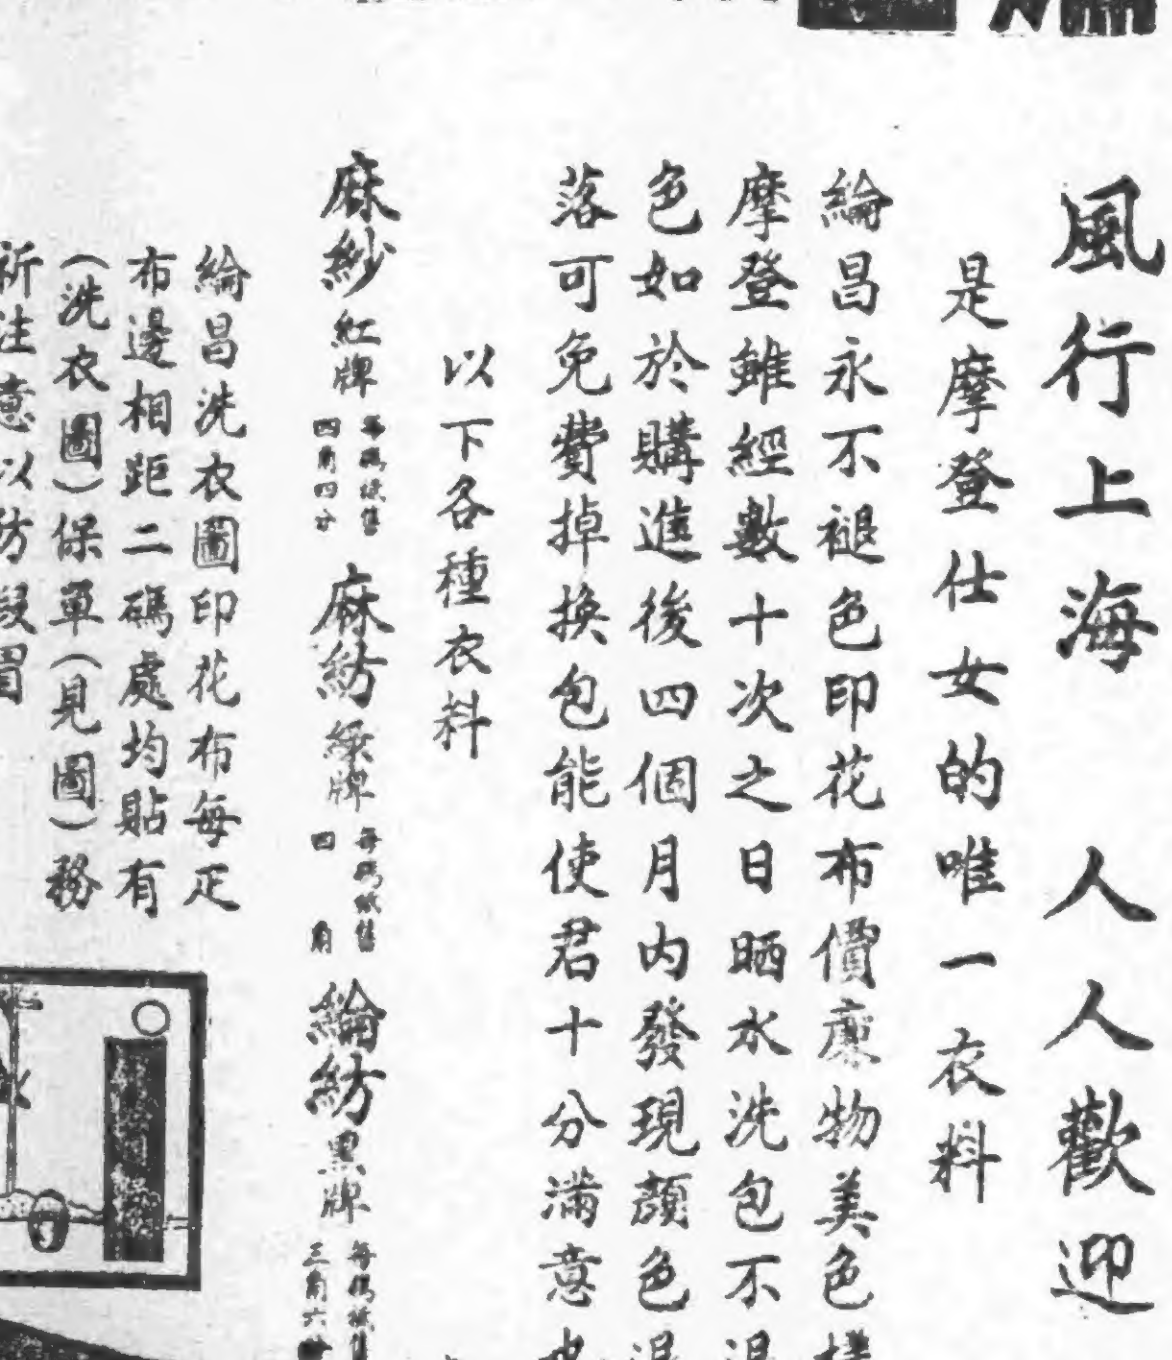 風行上海　人人歡迎
是摩登仕女的唯一衣料
綸昌永不褪色印花布價廉物美色樣
摩登雖經數十次之日晒水洗包不退
色如於購進後四個月內發現顏色退
落可免費掉換包能使君十分滿意也
以下各種衣料
麻紗紅牌
每碼祇售
四角四分
麻紡綠牌
每碼祇售
四角
綸紡黑牌
每碼祇售
三角六
綸昌洗衣圖印花布每疋
布邊相距二碼處均貼有
（洗衣圖）保單（見圖）務
祈注意以防假冒